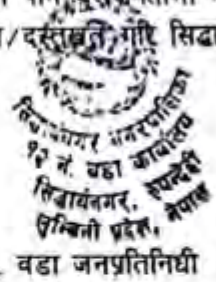 /दस्तखत गरि सिद्धा
सिद्धार्थनगर नगरपालिका
१३ नं. वडा कार्यालय
सिद्धार्थनगर, रुपन्देही
लुम्बिनी प्रदेश, नेपाल
वडा जनप्रतिनिधी